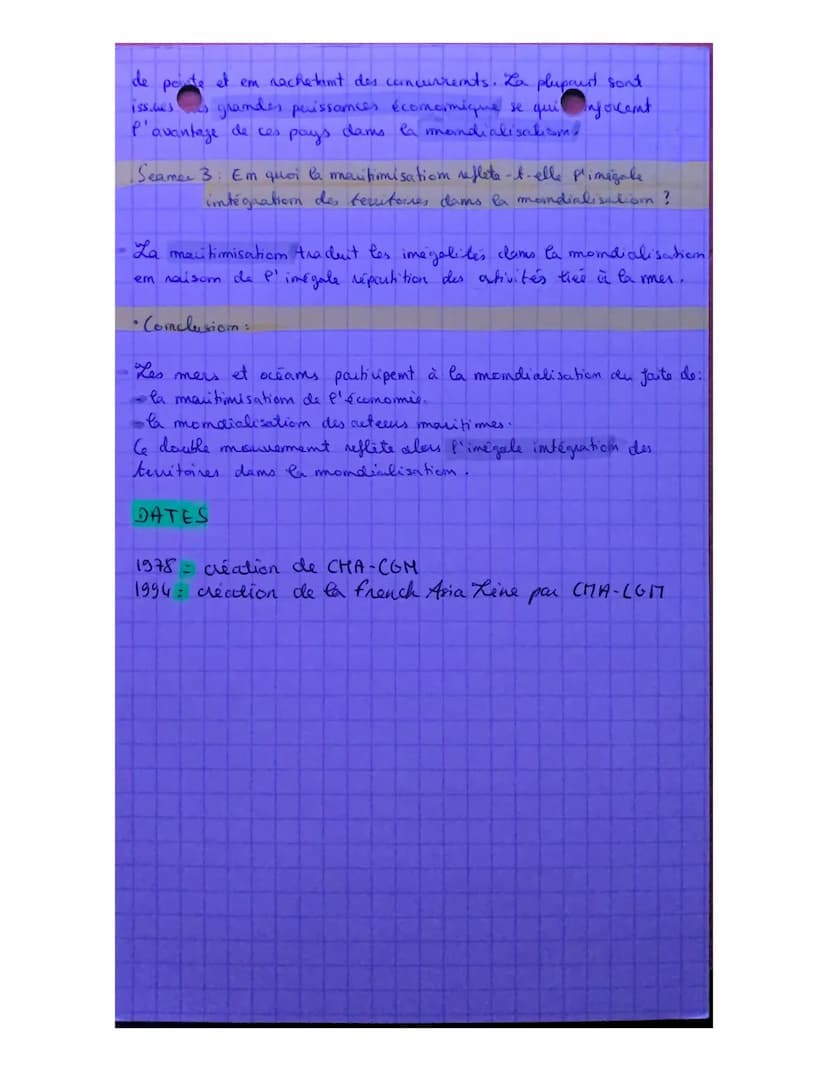 de pointe et en rachetant des concurrents. La plupart sont
issues des grandes puissances économique se qui renforcent
l'avantage de ces pays dans la mondialisation.
Seance 3 : En quoi la maritimisation reflète-t-elle l'inégale
intégration des territoires dans la mondialisation ?
- La maritimisation traduit les inégalités dans la mondialisation
en raison de l'inégale répartition des activités lieé à la mer.
• Conclusion :
- Les mers et océans participent à la mondialisation du faite de :
- la maritimisation de l'économie.
- la mondialisation des acteurs maritimes.
Ce double mouvement reflète alors l'inégale intégration des
territoires dans la mondialisation.
DATES
1978 = création de CMA-CGM
1994 = création de la French Asia Line par CMA-CGM